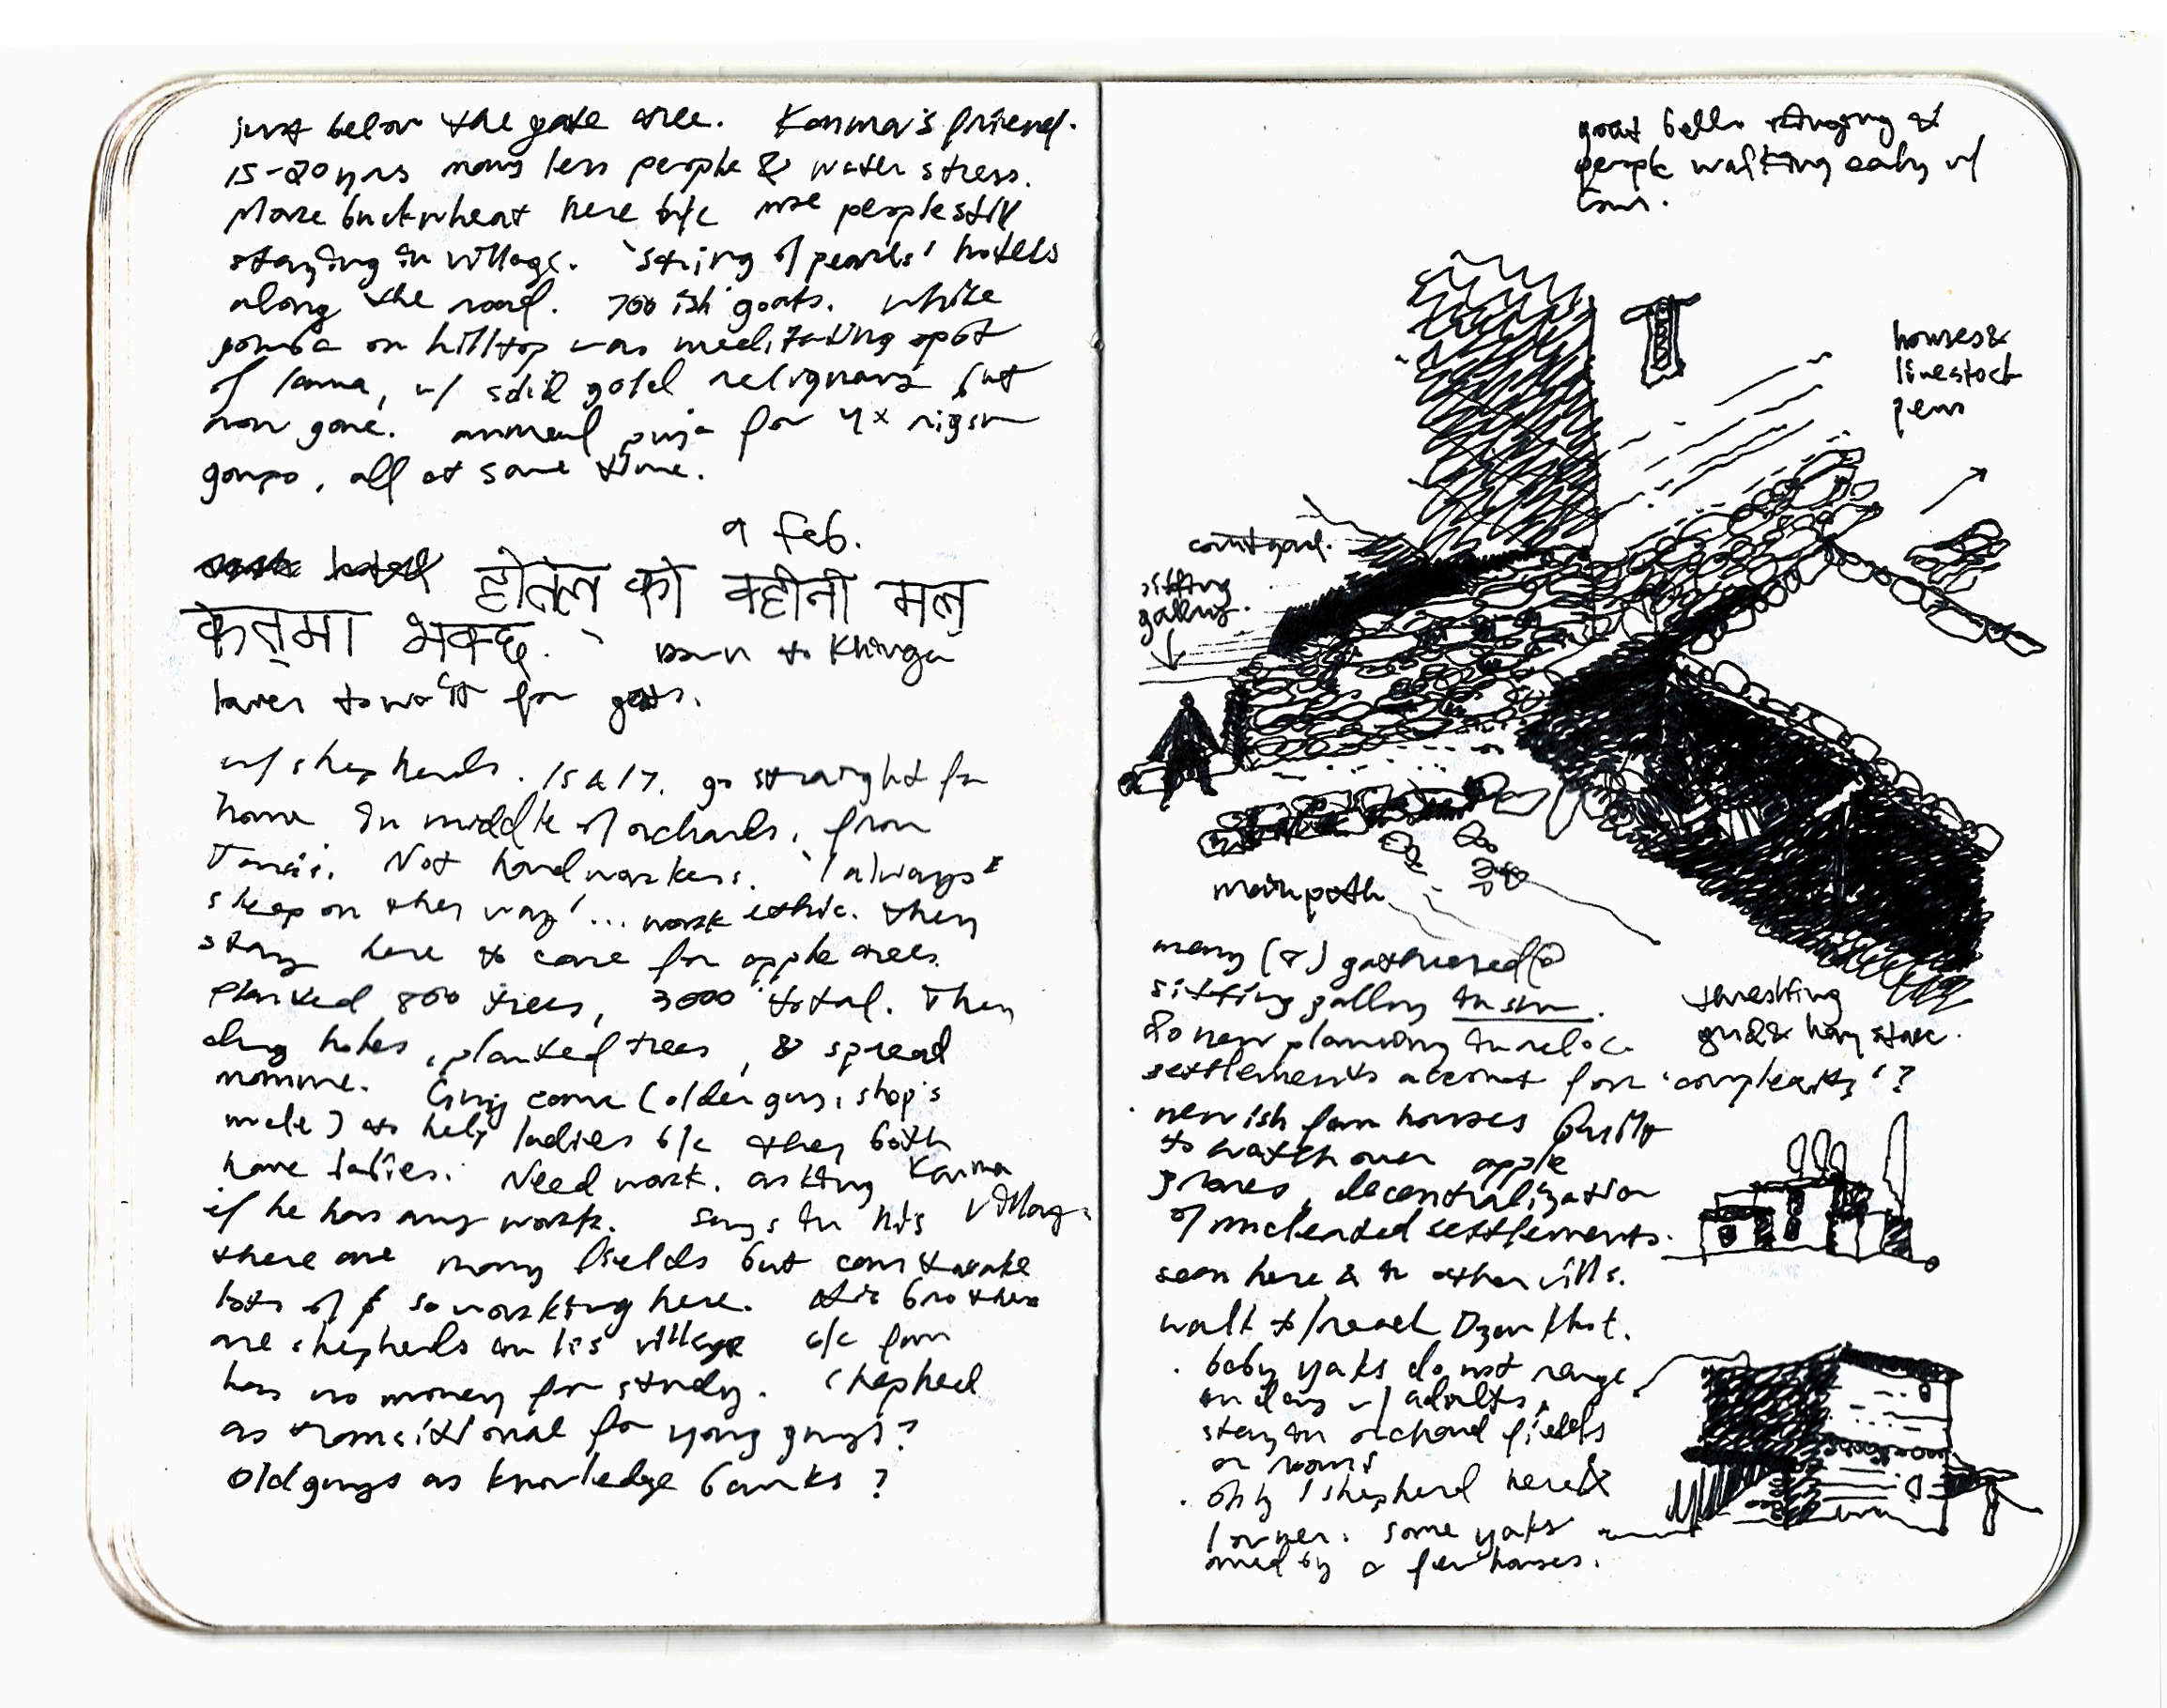 just below the gate tree. Karma's friend.
15-20 yrs many less people & water stress.
More buckwheat here b/c more people still
staying in village. 'string of pearls' hotels
along the road. 700 ish goats. white
gomba on hilltop was meditating spot
of lama, w/ solid gold but
now gone. annual puja for 4x rigsm
gonpo, all at same time.
9 feb.
होतेल को वहीनी मलु
केत्मा भक्छ. down to Khinga
to wait for goats.
w/ shepherds. 15 & 17. go straight for
home in middle of orchards, from
Not hard workers. 'I always
sleep on the way'... work ethic. they
stay here to care for apple trees.
planted 800 trees, 3000 total. They
dug holes, planted trees, & spread
Guy came (older guy, shop's
uncle) to help ladies b/c they both
have babies. Need work. asking Karma
if he has any work. says in his village
there are many fields but can't make
lots of $ so working here. His brothers
are shepherds in his village b/c fam
has no money for study. shepherd
as transitional for young guys?
Old guys as knowledge banks?
goat bells ringing &
people walking early w/
cows.
houses &
livestock
pens
courtyard.
sitting
gallery.
main path
many (8) gathered @
sitting gallery in sun.
Do new planning in reloc.
settlements account for 'complexity'?
threshing
grnd & hay store.
· new ish farm houses built
to watch over apple
groves, decentralization
of nucleated settlements.
seen here & in other vills.
walk to/reach Dzarkhot.
· baby yaks do not range
in day w/ adults,
stay in orchard fields
or rooms
· only 1 shepherd here &
1 owner. some yaks
owned by a few houses.